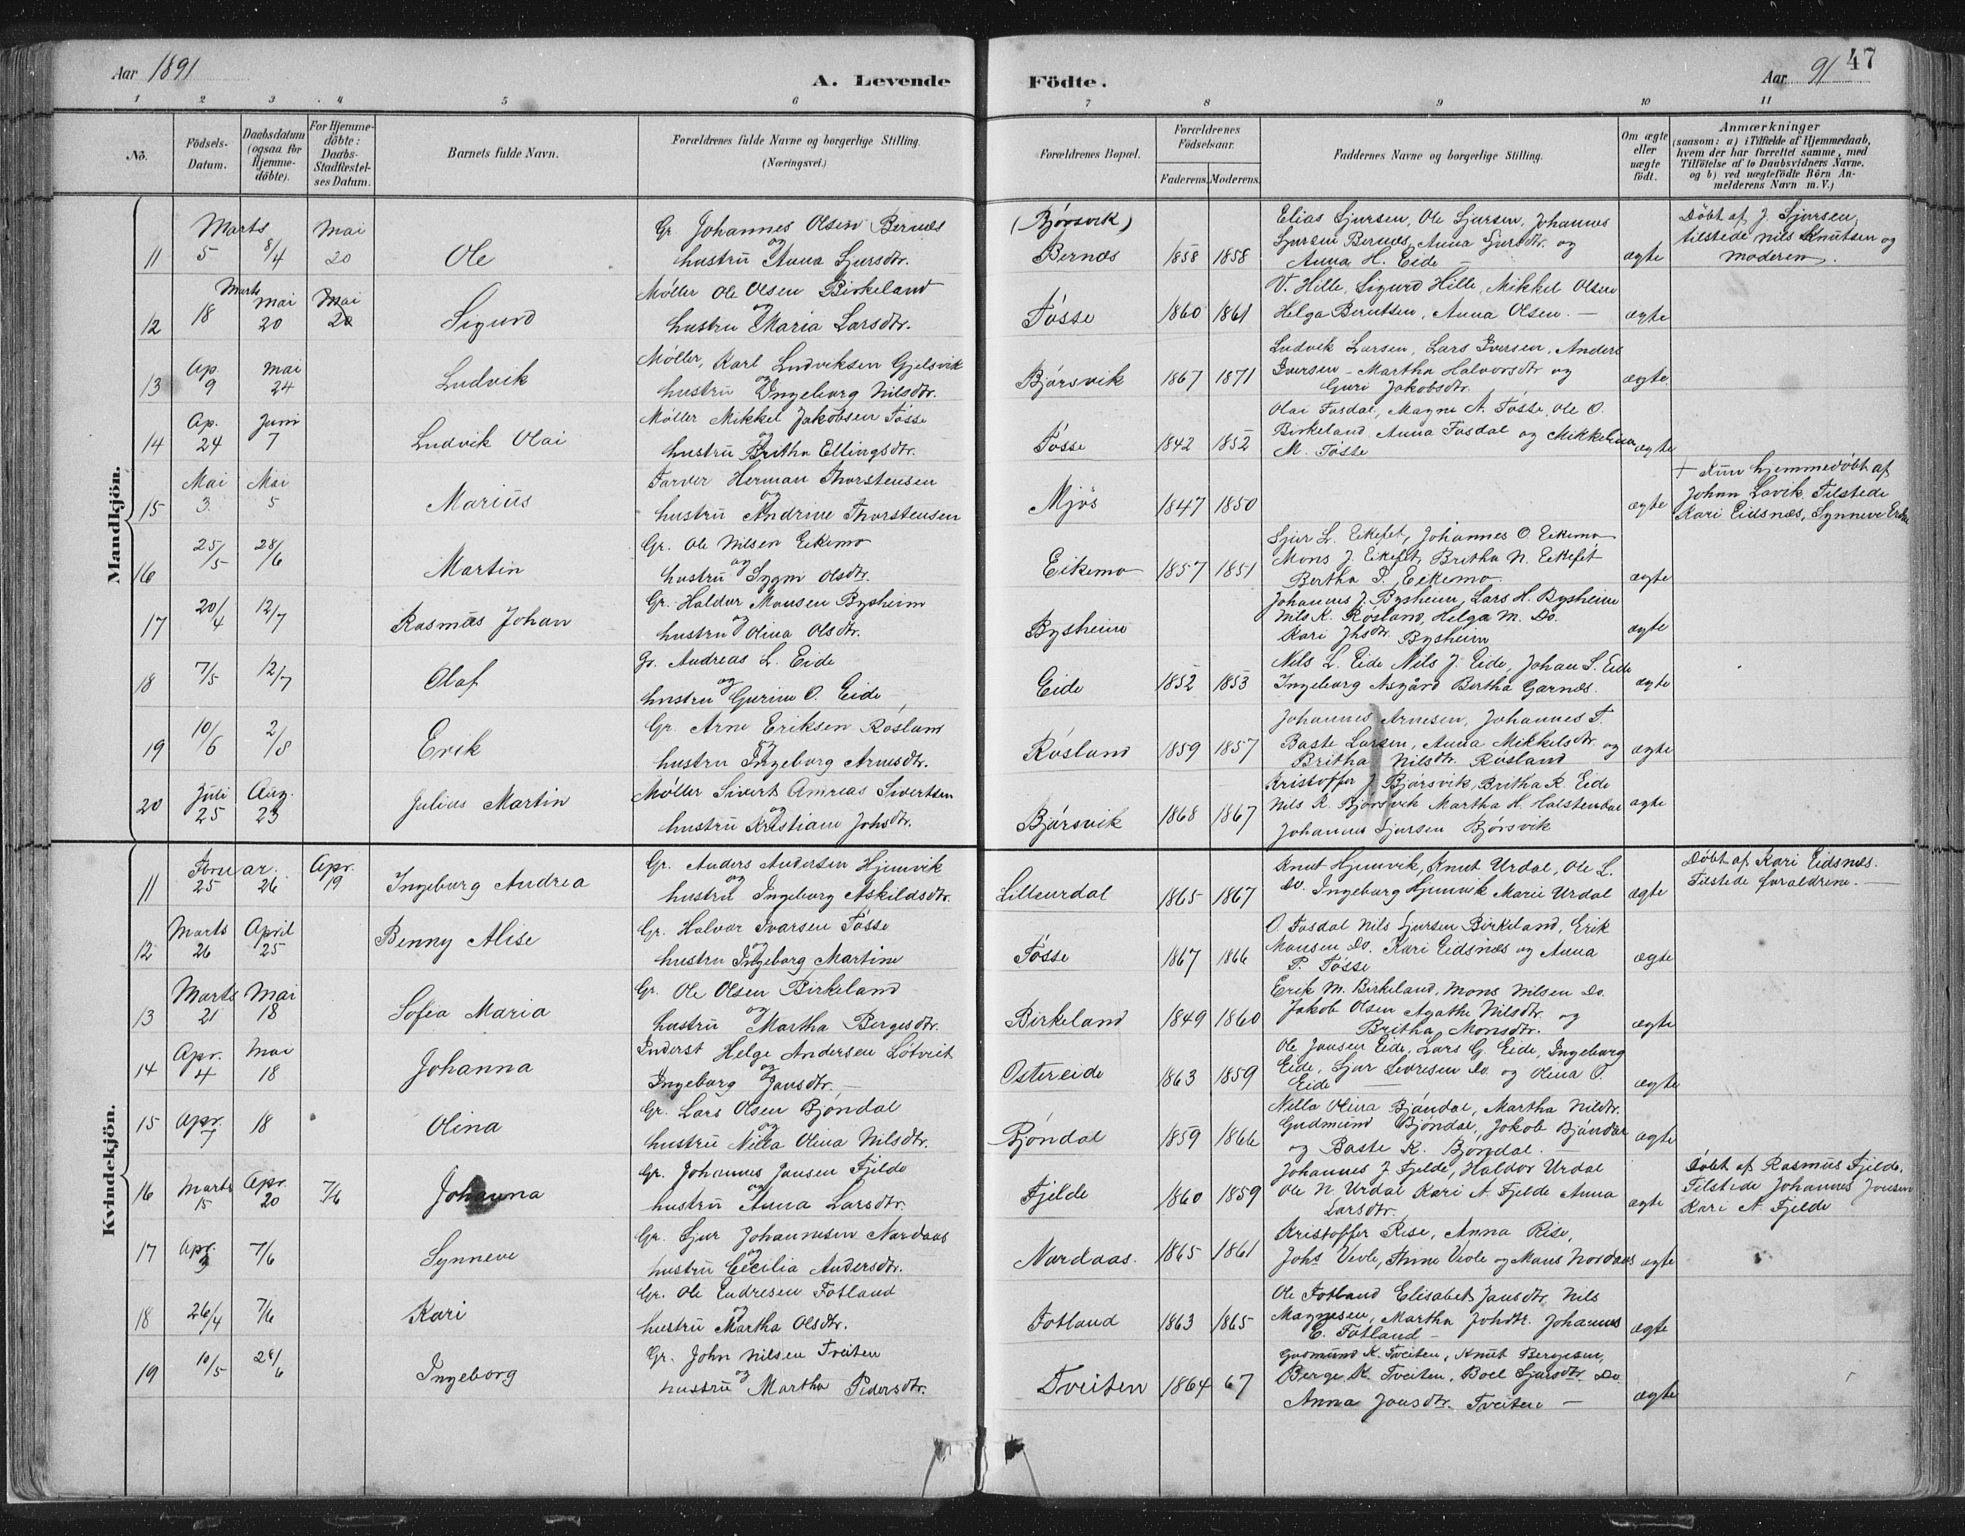 Aar 1891
A. Levende Födte.
Aar 91 47
1 2 3 4 5 6 7 8 9 10 11
No. Födsels-Datum. Daabsdatum (ogsaa for Hjemme-döbte). For Hjemme-döbte: Daabs-Stadfæstel-ses Datum. Barnets fulde Navn. Forældrenes fulde Navne og borgerlige Stilling. (Næringsvei.) Forældrenes Bopæl. Forældrenes Födselsaar. Faderens. Moderens. Faddernes Navne og borgerlige Stilling. Om ægte eller uægte födt. Anmærkninger (saasom: a) i Tilfælde af Hjemmedaab, hvem der har forrettet samme, med Tilföielse af to Daabsvidners Navne, og b) ved uægtefödte Börn An-melderens Navn m. V.)
Mandkjön.
Marts Mai Gr. Johannes Olsen Bernæs (Bjørsvik) Elias Sjursen, Ole Sjursen, Johannes Døbt af J. Sjursen,
11 5 8/4 20 Ole og Sjursen Bernæs, Anna Sjursdtr. og tilstede Nils Knutsen og
hustru Anna Sjursdtr. Bernæs 1858 1858 Anna H. Eide ægte moderen.
Marts Mai Mai Møller Ole Olsen Birkeland V. Hille, Sigurd Hille, Mikkel Olsen
12 18 20 20 Sigurd hustru og Maria Larsdtr. Tósse 1860 1861 Helga Berntsen, Anna Olsen. — ægte
Ap. Mai Møller, Karl Ludviksen Gjelsvik Ludvik Larsen, Lars Iversen, Anders
13 9 24 Ludvik hustru og Ingeborg Nilsdtr. Bjórsvik 1867 1871 Iversen - Martha Halvorsdtr og ægte
Guri Jakobsdtr.
Ap. Juni Møller Mikkel Jakobsen Tósse Olai Fasdal, Magne N. Tósse, Ole O.
14 24 7 Ludvik Olai hustru og Britha Ellingsdtr. Tósse 1842 1852 Birkeland, Anna Fasdal og Mikkelina ægte
M. Tósse
Mai Mai Farver Herman Thorstensen + Kun hjemmedøbt af
15 3 5 Marius og Mjós 1847 1850 ægte Johan Lavik. Tilstede
hustru Andrine Thorstensen Kari Eidsnæs, Synneve
25/5 28/6 Gr. Ole Nilsen Eikemo Sjur L. Eikefet, Johannes O Eikemo
16 Martin hustru og Sygni Olsdtr. Eikemo 1857 1851 Mons J. Eikefet, Britha N. Eikefet ægte
Bertha Eikemo
20/4 12/7 Gr. Haldor Monsen Bysheim Johannes J. Bysheim, Lars H. Bysheim
17 Rasmus Johan hustru og Olina Olsdtr. Bysheim Nils K. Rosland, Helga M. Do. ægte
Kari Jhsdtr Bysheim
7/5 12/7 Gr. Andreas L. Eide Nils L. Eide Nils J. Eide, Johan S. Eide
18 Olaf hustru og Gurine O. Eide Eide 1852 1853 Ingeborg Asgård Bertha Garnæs. ægte
10/6 2/8 Gr. Arne Eriksen Rosland Johannes Arnesen, Johannes T.
19 Erik og Rósland 1859 1857 Baste Larsen, Anna Mikkelsdtr og ægte
hustru Ingeborg Arnesdtr. Britha Nilsdtr Rósland
Juli Aug. Møller Sivert Andreas Sivertsen Kristoffer J Bjórsvik, Britha K. Eide
20 25 23 Julius Martin og Nils R. Bjórsvik Martha H. Halstendal ægte
hustru Kristiane Johsdtr. Bjórsvik 1868 1867 Johannes Sjursen Bjórsvik
Kvindekjön.
Februar. Apr. Gr. Anders Andersen Hjemvik Knut Hjemvik, Knut Urdal, Ole L. Døbt af Kari Eidsnæs.
11 25 26 19 Ingeborg Andrea hustru og Ingeborg Askildsdtr. Lilleurdal 1865 1867 Do. Ingeborg Hjemvik Marie Urdal ægte Tilstede forældrene. —
Marts April Gr. Halvor Ivarsen Tósse O. Fasdal Nils Sjursen Birkeland, Erik
12 26 25 Benny Alise og Tósse 1867 1866 Monsen Do. Kari Eidsnæs og Anna ægte
hustru Ingeborg Martine P. Tósse
Marts Mai Gr. Ole Olsen Birkeland Erik M. Birkeland, Mons Nilsen Do.
13 21 18 Sofia Maria og Birkeland 1849 1860 Jakob Olsen Agathe Nilsdtr. og ægte
hustru Martha Bergesdtr. Britha Monsdtr.
Apr. Mai Inderst Helge Andersen Lótveit Ole Jansen Eide, Lars G. Eide, Ingeborg
14 4 18 Johanna og Ostereide 1863 1859 Eide, Sjur Do. og Olena O. ægte
Ingeborg Jansdtr. — Eide —
15 Apr. 7 18 Olina Gr. Lars Olsen Bjóndal Nilla Olina Bjóndal, Martha Nilsdtr.
hustru og Nilla Olina Nilsdtr. Bjóndal 1859 1866 Gudmund Bjóndal, Jokob Bjóndal ægte
og Baste K. Bjóndal. —
Marts Apr. 7/6 Gr. Johannes Jansen Fjelde Johannes J. Fjelde, Haldor Urdal Døbt af Rasmus Fjelde.
16 15 20 Johanna og Fjelde 1860 1859 Ole N. Urdal Kari A. Fjelde Anna ægte Tilstede Johannes Jonsen
hustru Anna Larsdtr. Larsdtr. Kari A. Fjelde
17 Apr. 3 7/6 Synneve Gr. Sjur Johannesen Nordaas Kristoffer Rise, Anna Rise,
hustru og Cecilia Andersdtr. Nordaas. 1865 1861 Johs Veole, Anne Veole og Mons Nordaas ægte
26/4 7/6 Gr. Ole Endresen Fotland Ole Fotland Elisabeth Jansdtr Nils
18 Kari og Fotland 1863 1865 Magnesen, Martha Johsdtr. Johannes ægte
hustru Martha Olsdtr. E. Fotland —
10/5 28/6 Gr. John Nilsen Tveiten Gudmund K. Tveiten, Knut Bergesen,
19 Ingeborg og Tveiten 1864 67 Berge K. Tveiten, Boel Sjursdtr. Do. ægte
hustru Martha Pedersdtr. Anna Jonsdtr. Tveiten —